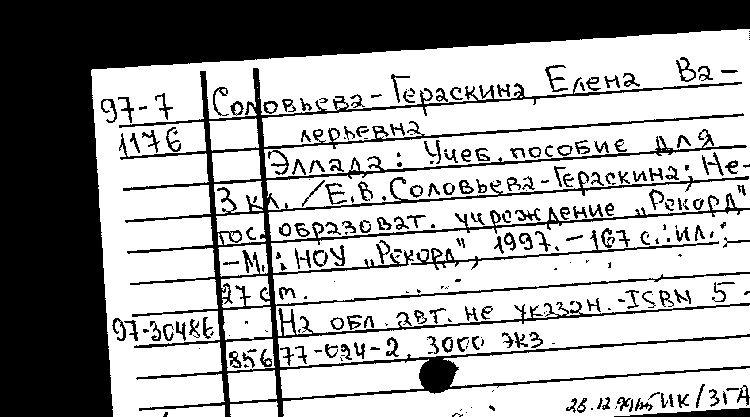 97-7 Соловьева-Гераскина, Елена Ва-
1176 лерьевна
Эллада: Учеб. пособие для
3 кл. / Е.В. Соловьева-Гераскина; Не-
гос. образоват. учреждение „Рекорд"
- М.: НОУ „Рекорд", 1997. - 167 с.: ил.;
27 см.
97-30486 На обл. авт. не указан. - ISBN 5-
85677-024-2, 3000 экз.
ИК/ЗГА